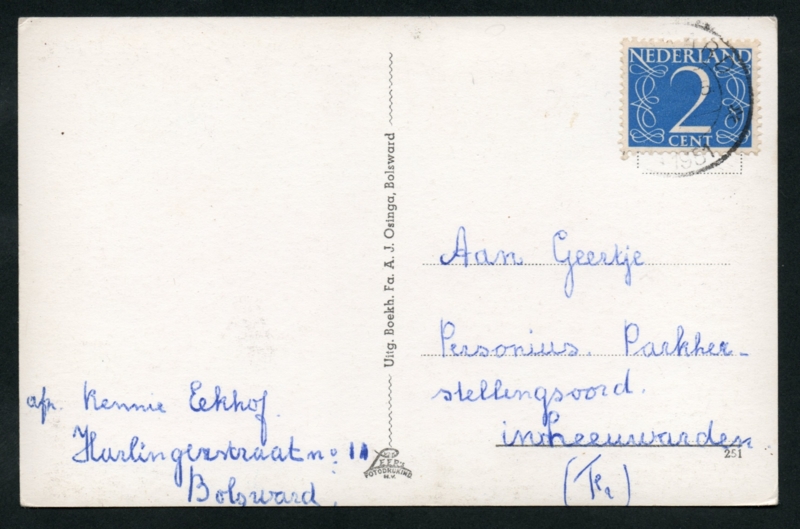 NEDERLAND
2
CENT
1951
Uitg. Boekh. Fa. A. J. Osinga, Bolsward
Aan Geertje
Personius. Parkher-
stellingsoord.
in Leeuwarden
251
afz. Rennie Eekhof
Harlingerstraat no 11
Bolsward.
FOTODRUKIND
N.V.